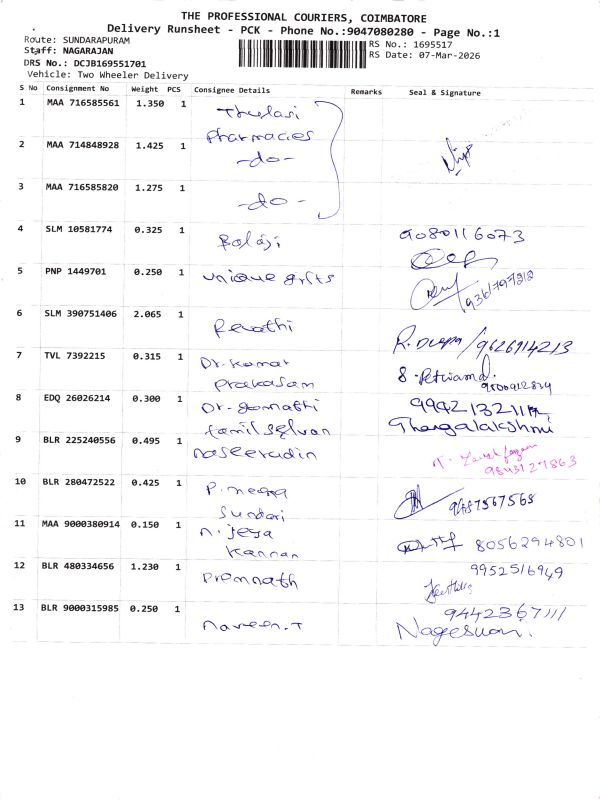 THE PROFESSIONAL COURIERS, COIMBATORE
Delivery Runsheet - PCK - Phone No.:9047080280 - Page No.:1
Route: SUNDARAPURAM
RS No.: 1695517
Staff: NAGARAJAN
RS Date: 07-Mar-2026
DRS No.: DCJB169551701
Vehicle: Two Wheeler Delivery
S No Consignment No Weight PCS Consignee Details Remarks Seal & Signature
1 MAA 716585561 1.350 1 Thulasi
Pharmacies
2 MAA 714848928 1.425 1 -do-
3 MAA 716585820 1.275 1 -do-
4 SLM 10581774 0.325 1 Balaji 9080116073
5 PNP 1449701 0.250 1 unique gifts
6 SLM 390751406 2.065 1 Revathi R. Deepa/9626914213
7 TVL 7392215 0.315 1 Dr. Kumar
Prakasam 9500912834
8 EDQ 26026214 0.300 1 Dr. Gomathi 9942132111
Tamil Selvan Thangalakshmi
9 BLR 225240556 0.495 1 Naseerudin
9843127863
10 BLR 280472522 0.425 1 P. Meena 9487567568
Sundari
11 MAA 9000380914 0.150 1 N. Jeya 8056294801
Kannan
12 BLR 480334656 1.230 1 Premnath 9952516949
13 BLR 9000315985 0.250 1 Naveen.T 9442367111
Nageswari.